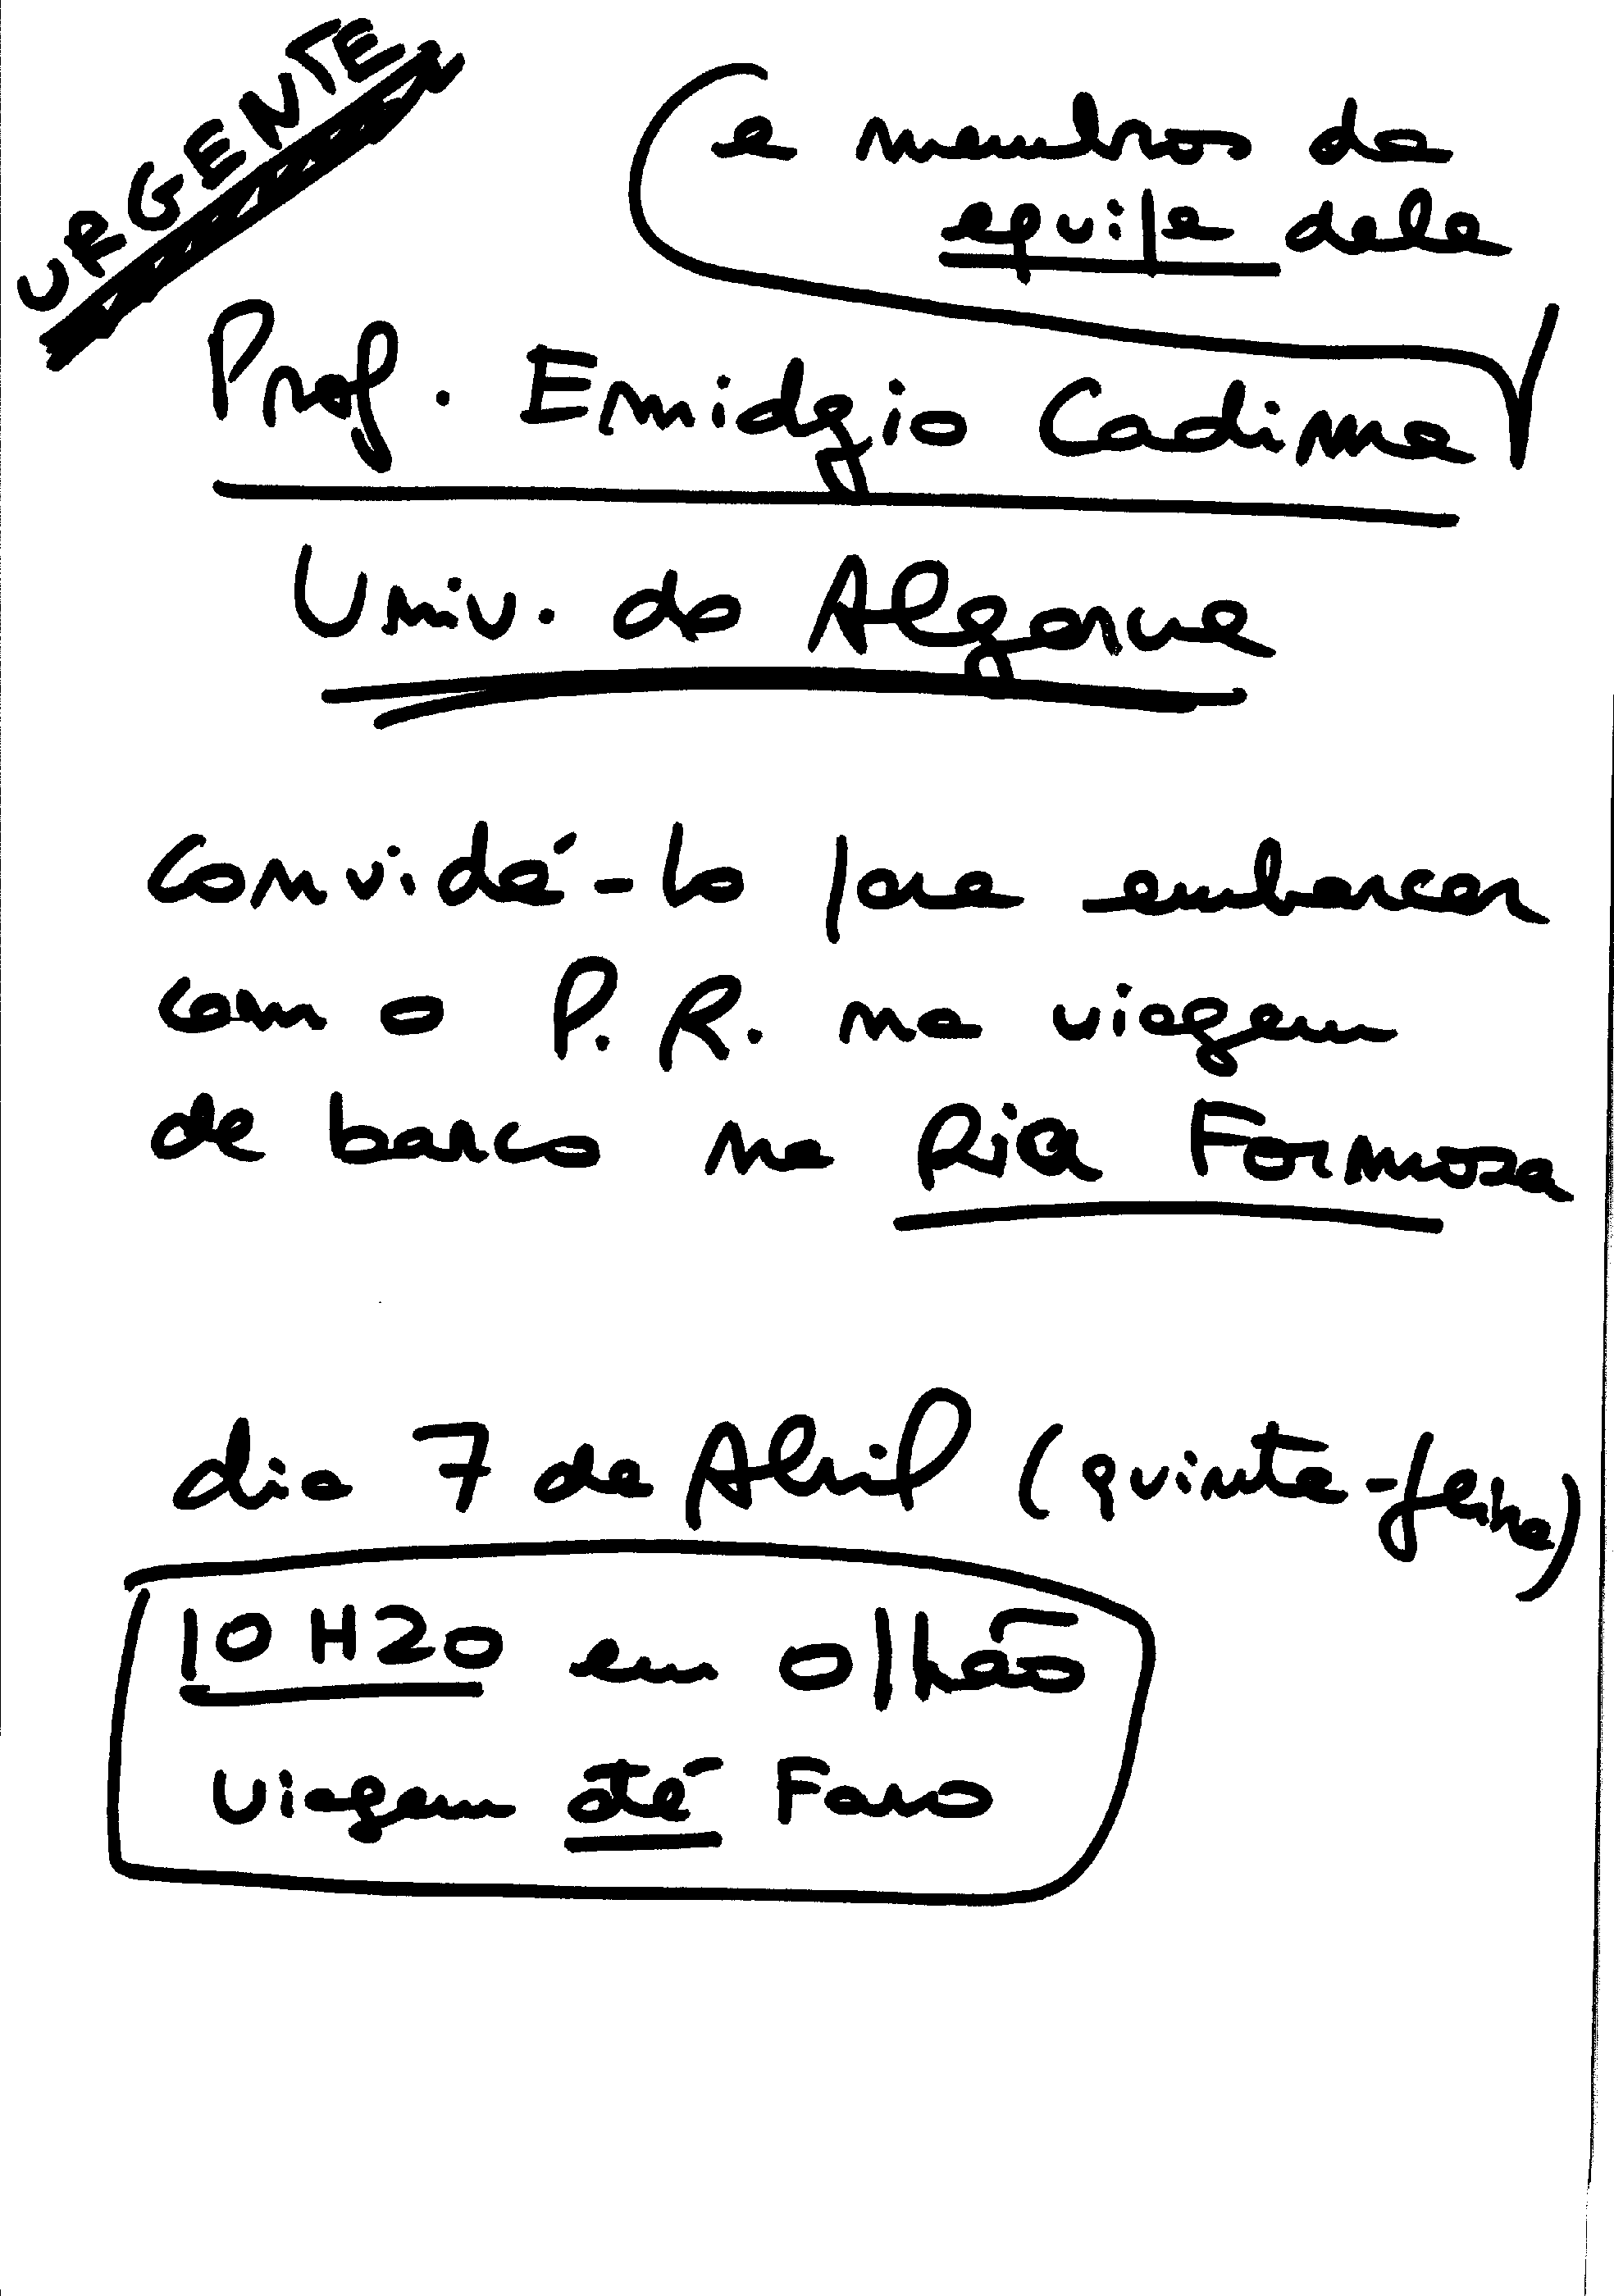 URGENTE
e membros da
equipe dele
Prof. Emidgio Cadima
Univ. do Algarve
convidá-lo para embarcar
com o P. R. na viagem
de barco na Ria Formosa
dia 7 de Abril (quinta-feira)
10H20 em Olhão
Viagem até Faro